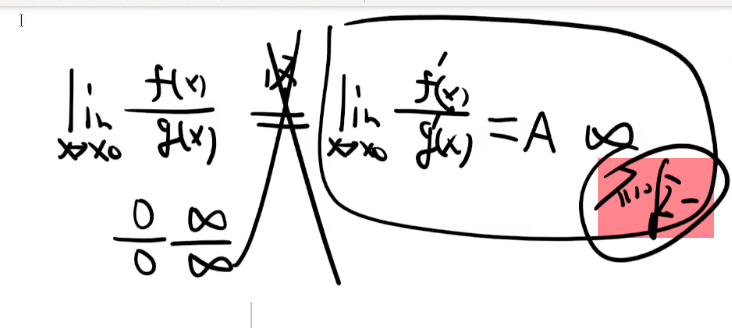 lim x→x0 f(x)/g(x) = lim x→x0 f'(x)/g'(x) = A ∞
0/0 ∞/∞